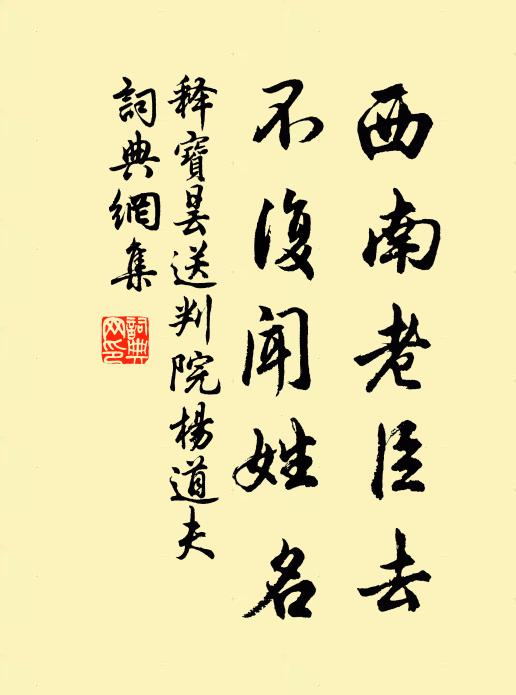 西南老臣去
不復闻姓名
释寶曇送判院楊道夫
詞典網集
詞典网印